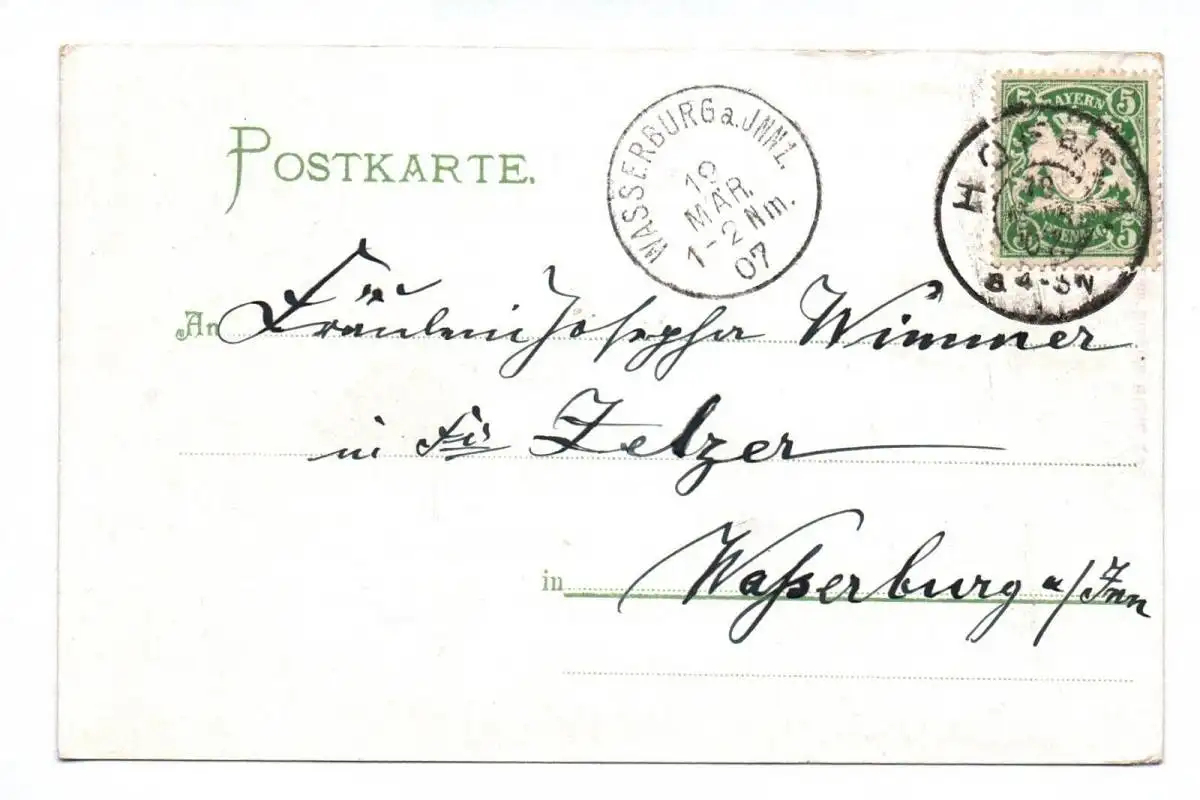 POSTKARTE.
WASSERBURG a. JNN 1.
19
MÄR
1-2 Nm.
07
5 BAYERN 5
5 PFENNIG 5
8 4-5N
An Fräulein Josepha Wimmer
in Fa Zelzer
in Waßerburg a/Inn